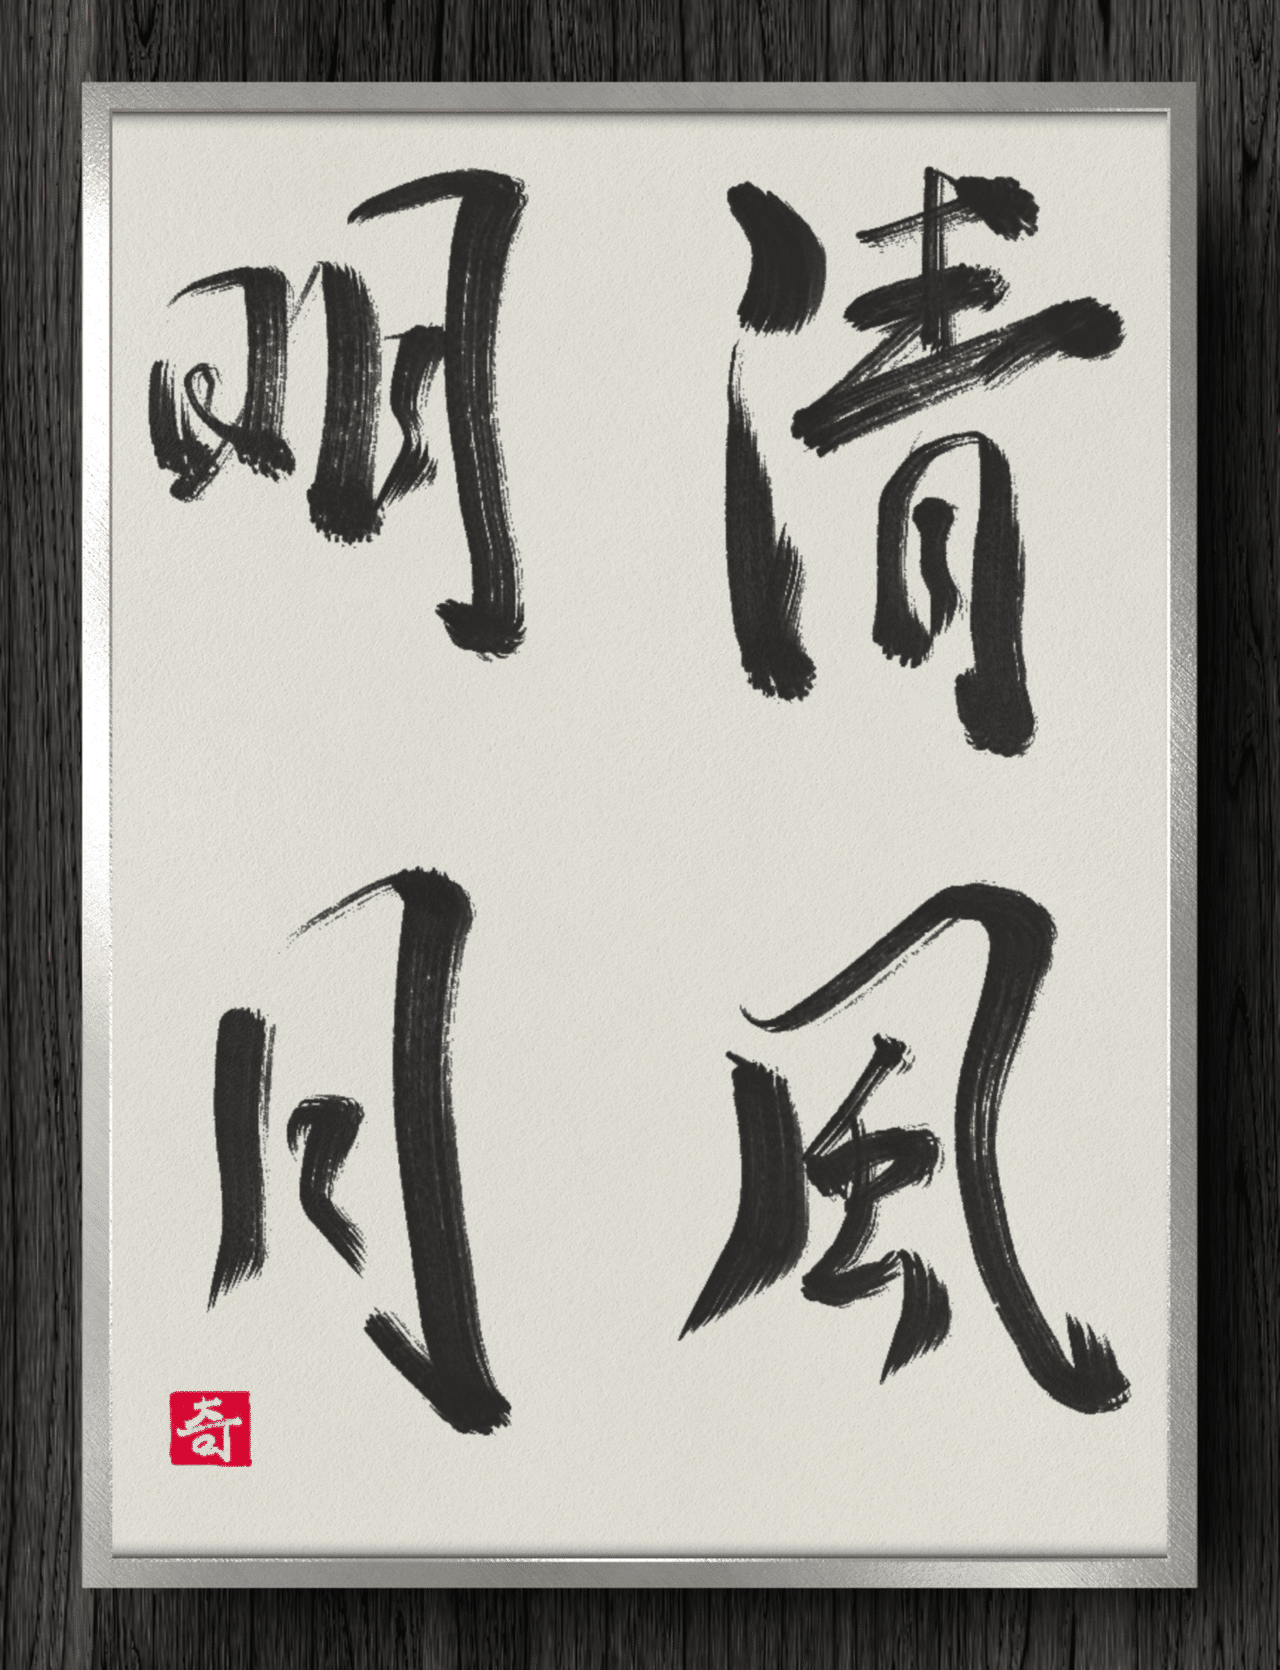 清風
明月
奇